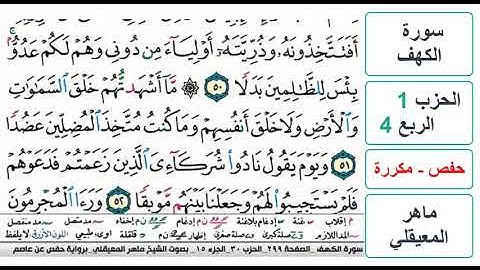 أَفَتَتَّخِذُونَهُۥ وَذُرِّيَّتَهُۥٓ أَوۡلِيَآءَ مِن دُونِي وَهُمۡ لَكُمۡ عَدُوُّۢۚ
بِئۡسَ لِلظَّٰلِمِينَ بَدَلٗا ٥٠ ۞ مَّآ أَشۡهَدتُّهُمۡ خَلۡقَ ٱلسَّمَٰوَٰتِ
وَٱلۡأَرۡضِ وَلَا خَلۡقَ أَنفُسِهِمۡ وَمَا كُنتُ مُتَّخِذَ ٱلۡمُضِلِّينَ عَضُدٗا
٥١ وَيَوۡمَ يَقُولُ نَادُواْ شُرَكَآءِيَ ٱلَّذِينَ زَعَمۡتُمۡ فَدَعَوۡهُمۡ
فَلَمۡ يَسۡتَجِيبُواْ لَهُمۡ وَجَعَلۡنَا بَيۡنَهُم مَّوۡبِقٗا ٥٢ وَرَءَا ٱلۡمُجۡرِمُونَ
سورة الكهف - الصفحة ٢٩٩ - الحزب ٣٠ - الجزء ١٥ - بصوت الشيخ ماهر المعيقلي - برواية حفص عن عاصم
سورة
الكهف
الحزب 1
الربع 4
حفص - مكررة
ماهر
المعيقلي